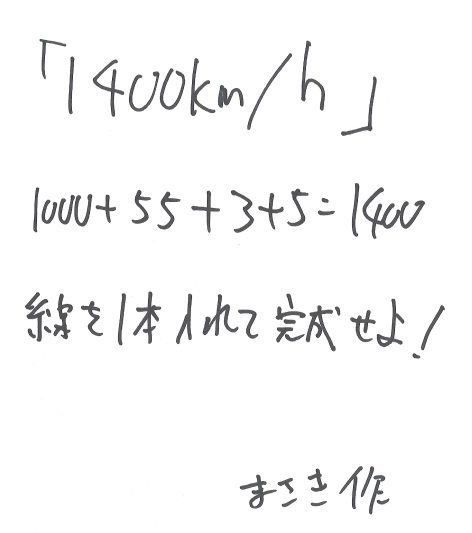 「1400km/h」
1000+55+3+5=1400
線を1本入れて完成せよ!
まさき作